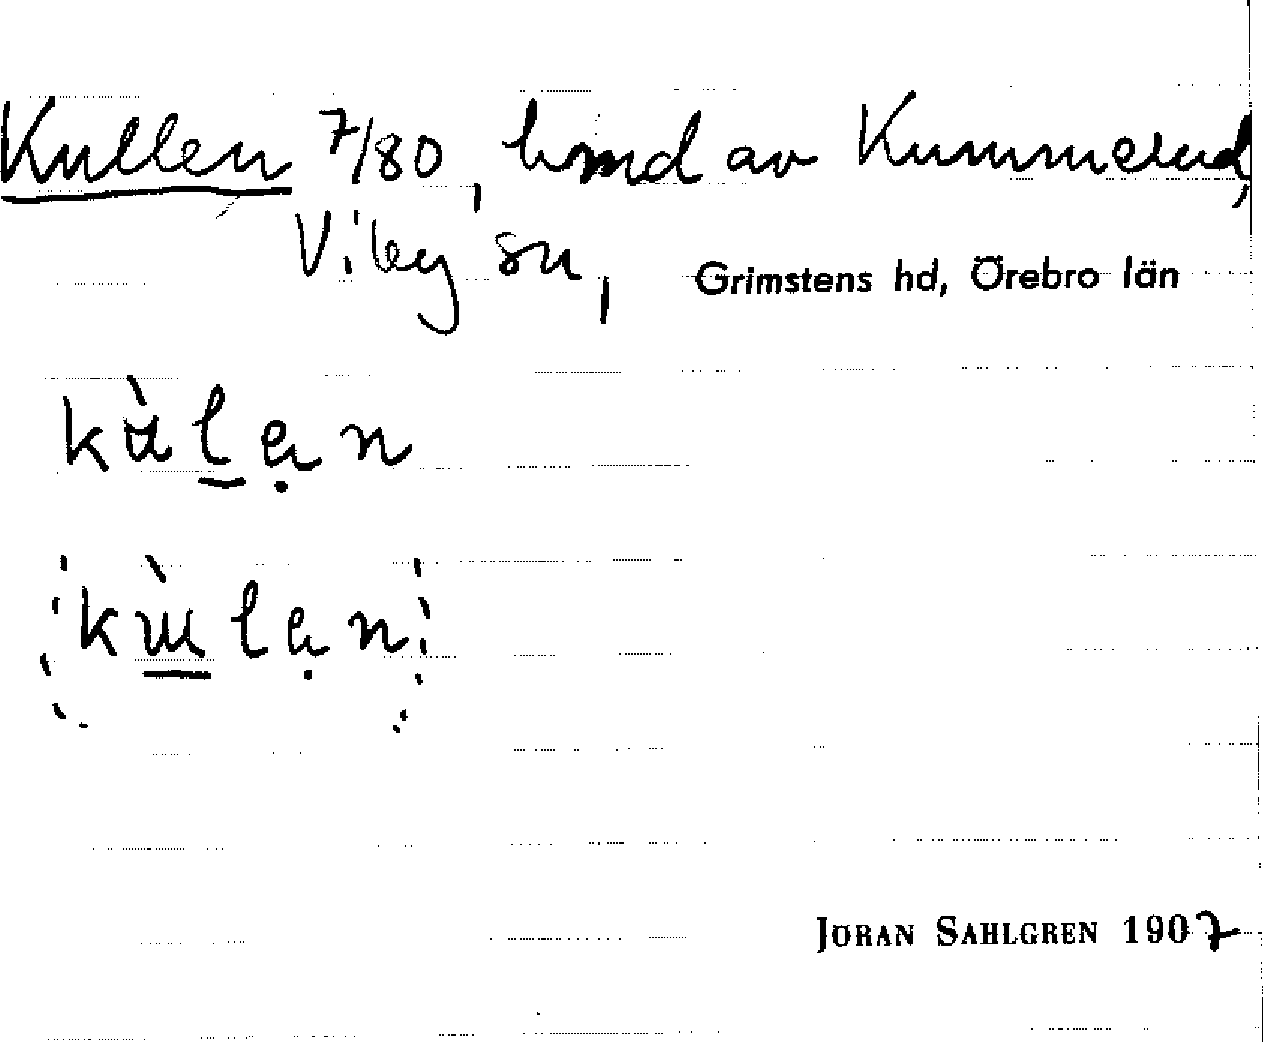 Kullen 7/80, hmd av Kummelud,
Viby sn, Grimstens hd, Örebro län
JÖRAN SAHLGREN 1907